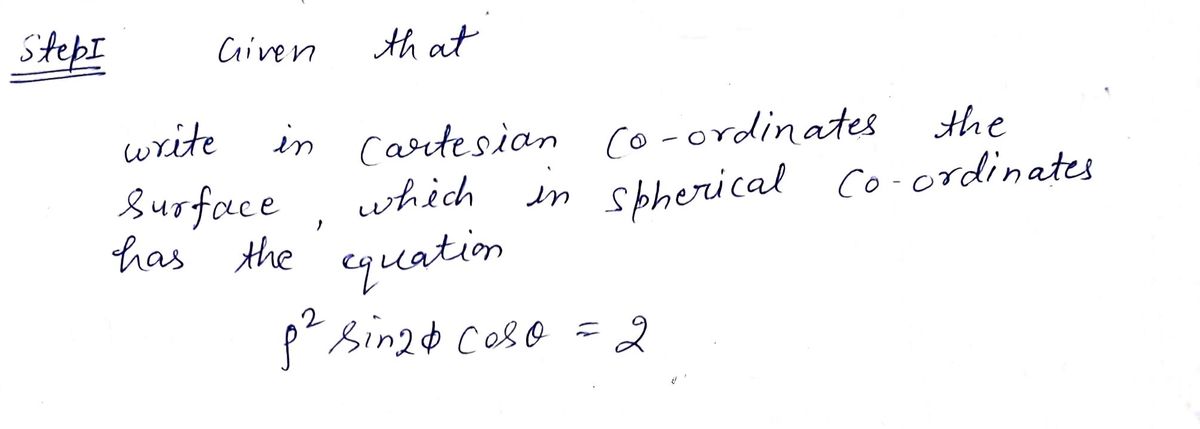 Step I Given that
write in Cartesian Co-ordinates the
Surface, which in spherical Co-ordinates
has the equation
ρ² sin2φ cosθ = 2